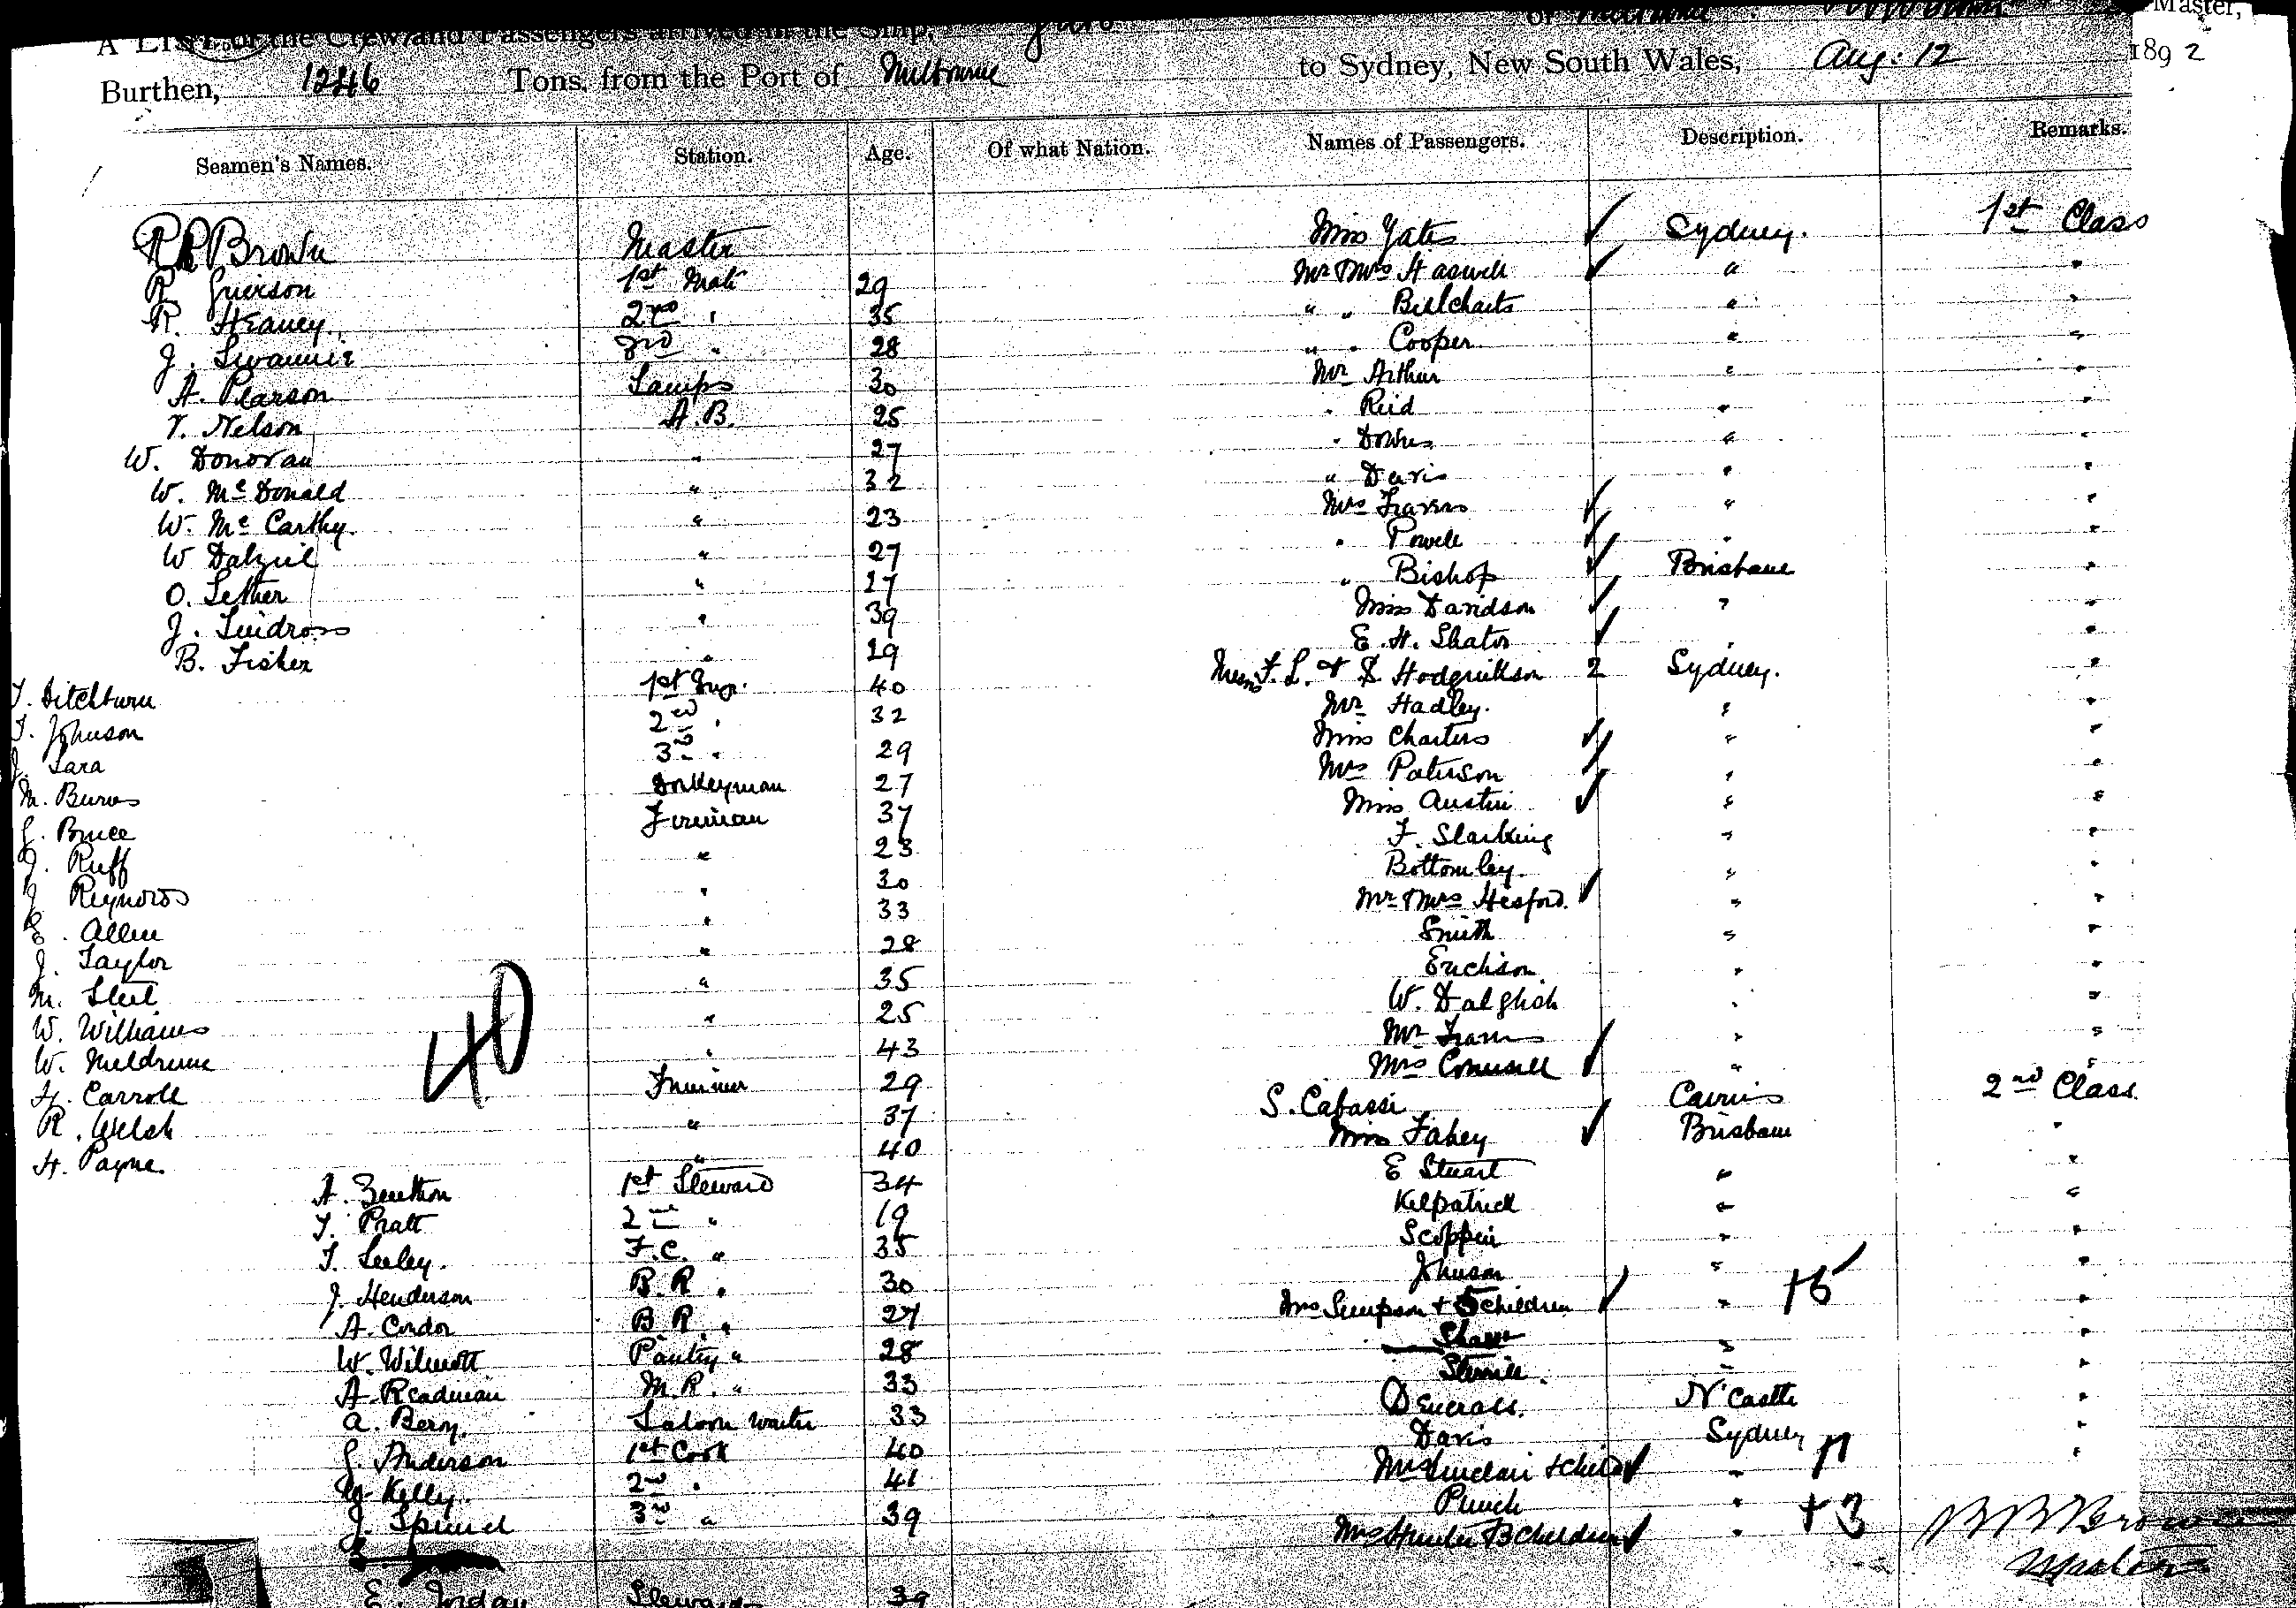 A LIST of the Crew and Passengers arrived in the Ship, of Master,
Burthen, 1246 Tons, from the Port of Melbourne to Sydney, New South Wales, Aug: 12 1892
Seamen's Names. Station. Age. Of what Nation. Names of Passengers. Description. Remarks.
Brown Master Miss Yates ✓ Sydney. 1st Class
R Grierson 1st Mate 29 Mr & Mrs Haswell ✓ " "
R. Heaney 2nd " 35 " " Bellchaits " "
J. Swannie 3rd " 28 " " Cooper " "
A. Pearson Lamps 30 Mr Arthur " "
T. Nelson A.B. 25 " Reid " "
W. Donovan " 27 " Downes " "
W. McDonald " 32 " Davis " "
W. McCarthy " 23 Mrs Travers ✓ " "
W Dalziel " 27 " Powell ✓ " "
O. Sether " 27 " Bishop ✓ Brisbane "
J. Lindross " 39 Miss Davidson ✓ " "
B. Fisher " 29 E. H. Slator ✓ " "
T. Ditchburn 1st Eng. 40 Messrs F. L. & S. Hodgkinson 2 Sydney. "
T. Johnson 2nd " 32 Mr Hadley. " "
J. Lara 3rd " 29 Miss Charters ✓ " "
M. Burns Donkeyman 27 Mrs Paterson ✓ " "
G. Bruce Fireman 37 Miss Austin ✓ " "
J. Ruff " 23 F. Starking " "
J Reynolds " 30 Bottomley. " "
E. Allen " 33 Mr & Mrs Hesford. ✓ " "
J. Taylor " 28 Smith " "
M. Steel " 35 Erickson " "
W. Williams " 25 W. Dalglish " "
W. Meldrum " 43 Mr " "
40
H. Carroll Trimmer 29 Mrs ✓ " "
R. Welsh " 37 S. Cabassi Cairns 2nd Class
H. Payne. " 40 Miss Fahey ✓ Brisbane "
A. 1st Steward 34 E Stuart " "
T. Pratt 2nd " 19 Kilpatrick " "
T. Seeley. F.C. " 35 Scoppin " "
J. Henderson B.R. " 30 Johnson " "
A. Condor B.R. " 27 Mrs Simpson + 5 children ✓ " +5 "
W. Wilmott Pantry " 28 Shaw " "
A. Readman M.R. " 33 " "
A. Berry Saloon Waiter 33 N'Castle "
G. Anderson 1st Cook 40 Davis Sydney "
W. Kelly. 2nd " 41 Mrs Sinclair + child ✓ " "
J. 3rd " 39 Punch "
Mrs Hunter 3 Children ✓ " +3 Brown
Master
E. Jordan Steward 39